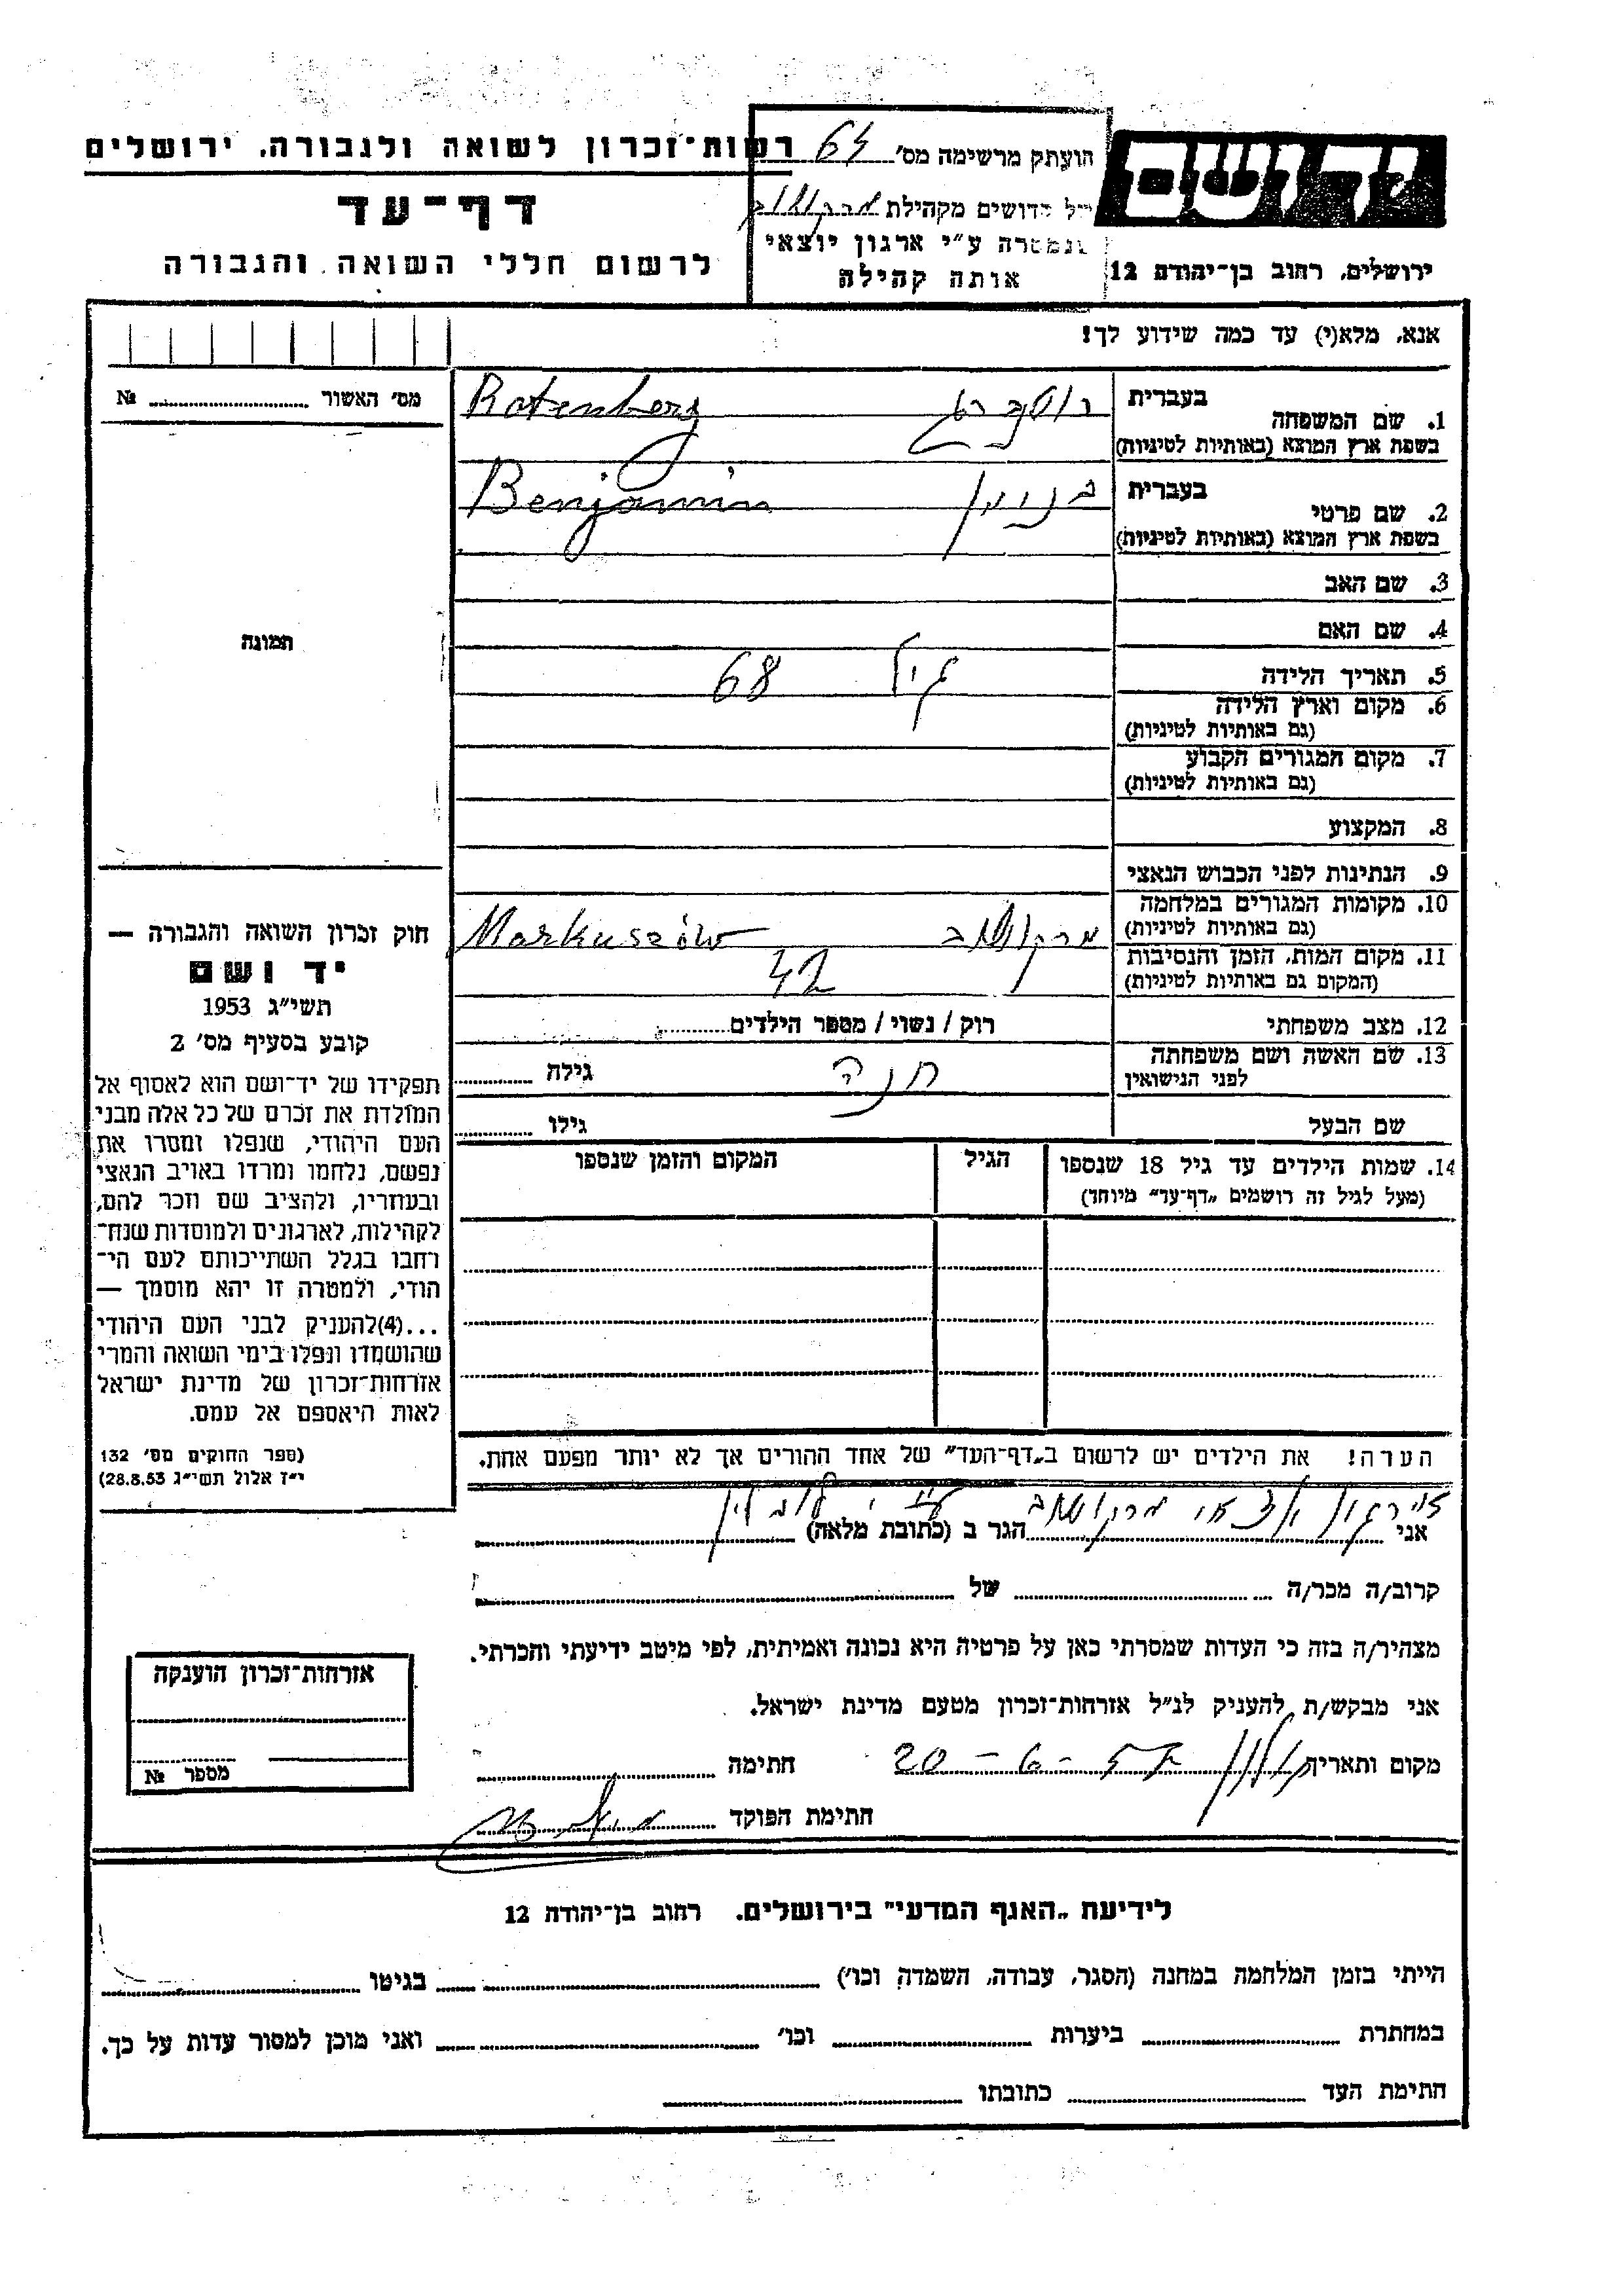 רשות־זכרון לשואה ולגבורה. ירושלים
דף־עד
לרשום חללי השואה והגבורה
הועתק מרשימה מס׳ 64
קדושים מקהילת מרקושוב
שנמסרה ע״י ארגון יוצאי
אותה קהילה
יד ושם
ירושלים, רחוב בן־יהודה 12
אנא, מלא(י) עד כמה שידוע לך!
מס׳ האשור № 
1. שם המשפחה
בעברית רוטנברג
בשפת ארץ המוצא (באותיות לטיניות) Rotenberg
2. שם פרטי
בעברית בנימין
בשפת ארץ המוצא (באותיות לטיניות) Benjamin
3. שם האב
4. שם האם
5. תאריך הלידה גיל 68
6. מקום וארץ הלידה
(גם באותיות לטיניות)
7. מקום המגורים הקבוע
(גם באותיות לטיניות)
8. המקצוע
9. הנתינות לפני הכבוש הנאצי
10. מקומות המגורים במלחמה
(גם באותיות לטיניות) מרקושוב Markuszów
11. מקום המות, הזמן והנסיבות
(המקום גם באותיות לטיניות) 42
12. מצב משפחתי רוק / נשוי / מספר הילדים
13. שם האשה ושם משפחתה
לפני הנישואין חנה גילה
שם הבעל גילו
14. שמות הילדים עד גיל 18 שנספו הגיל המקום והזמן שנספו
(מעל לגיל זה רושמים „דף־עד״ מיוחד)
הערה! את הילדים יש לרשום ב„דף־העד״ של אחד ההורים אך לא יותר מפעם אחת.
תמונה
חוק זכרון השואה והגבורה —
יד ושם
תשי״ג 1953
קובע בסעיף מס׳ 2
תפקידו של יד־ושם הוא לאסוף אל
המולדת את זכרם של כל אלה מבני
העם היהודי, שנפלו ומסרו את
נפשם, נלחמו ומרדו באויב הנאצי
ובעוזריו, ולהציב שם וזכר להם,
לקהילות, לארגונים ולמוסדות שנח־
רחבו בגלל השתייכותם לעם הי־
הודי, ולמטרה זו יהא מוסמך —
...(4)להעניק לבני העם היהודי
שהושמדו ונפלו בימי השואה והמרי
אזרחות־זכרון של מדינת ישראל
לאות היאספם אל עמם.
(ספר החוקים מס׳ 132
י״ז אלול תשי״ג 28.8.53)
אני מרקושוב הגר ב (כתובת מלאה)
קרוב/ה מכר/ה של
מצהיר/ה בזה כי העדות שמסרתי כאן על פרטיה היא נכונה ואמיתית, לפי מיטב ידיעתי והכרתי.
אני מבקש/ת להעניק לנ״ל אזרחות־זכרון מטעם מדינת ישראל.
מקום ותאריך חולון 20-6-57 חתימה
חתימת הפוקד
אזרחות־זכרון הוענקה
מספר №
לידיעת „האגף המדעי״ בירושלים. רחוב בן־יהודה 12
הייתי בזמן המלחמה במחנה (הסגר, עבודה, השמדה וכו׳) בגיטו
במחתרת ביערות וכו׳ ואני מוכן למסור עדות על כך.
חתימת העד כתובתו